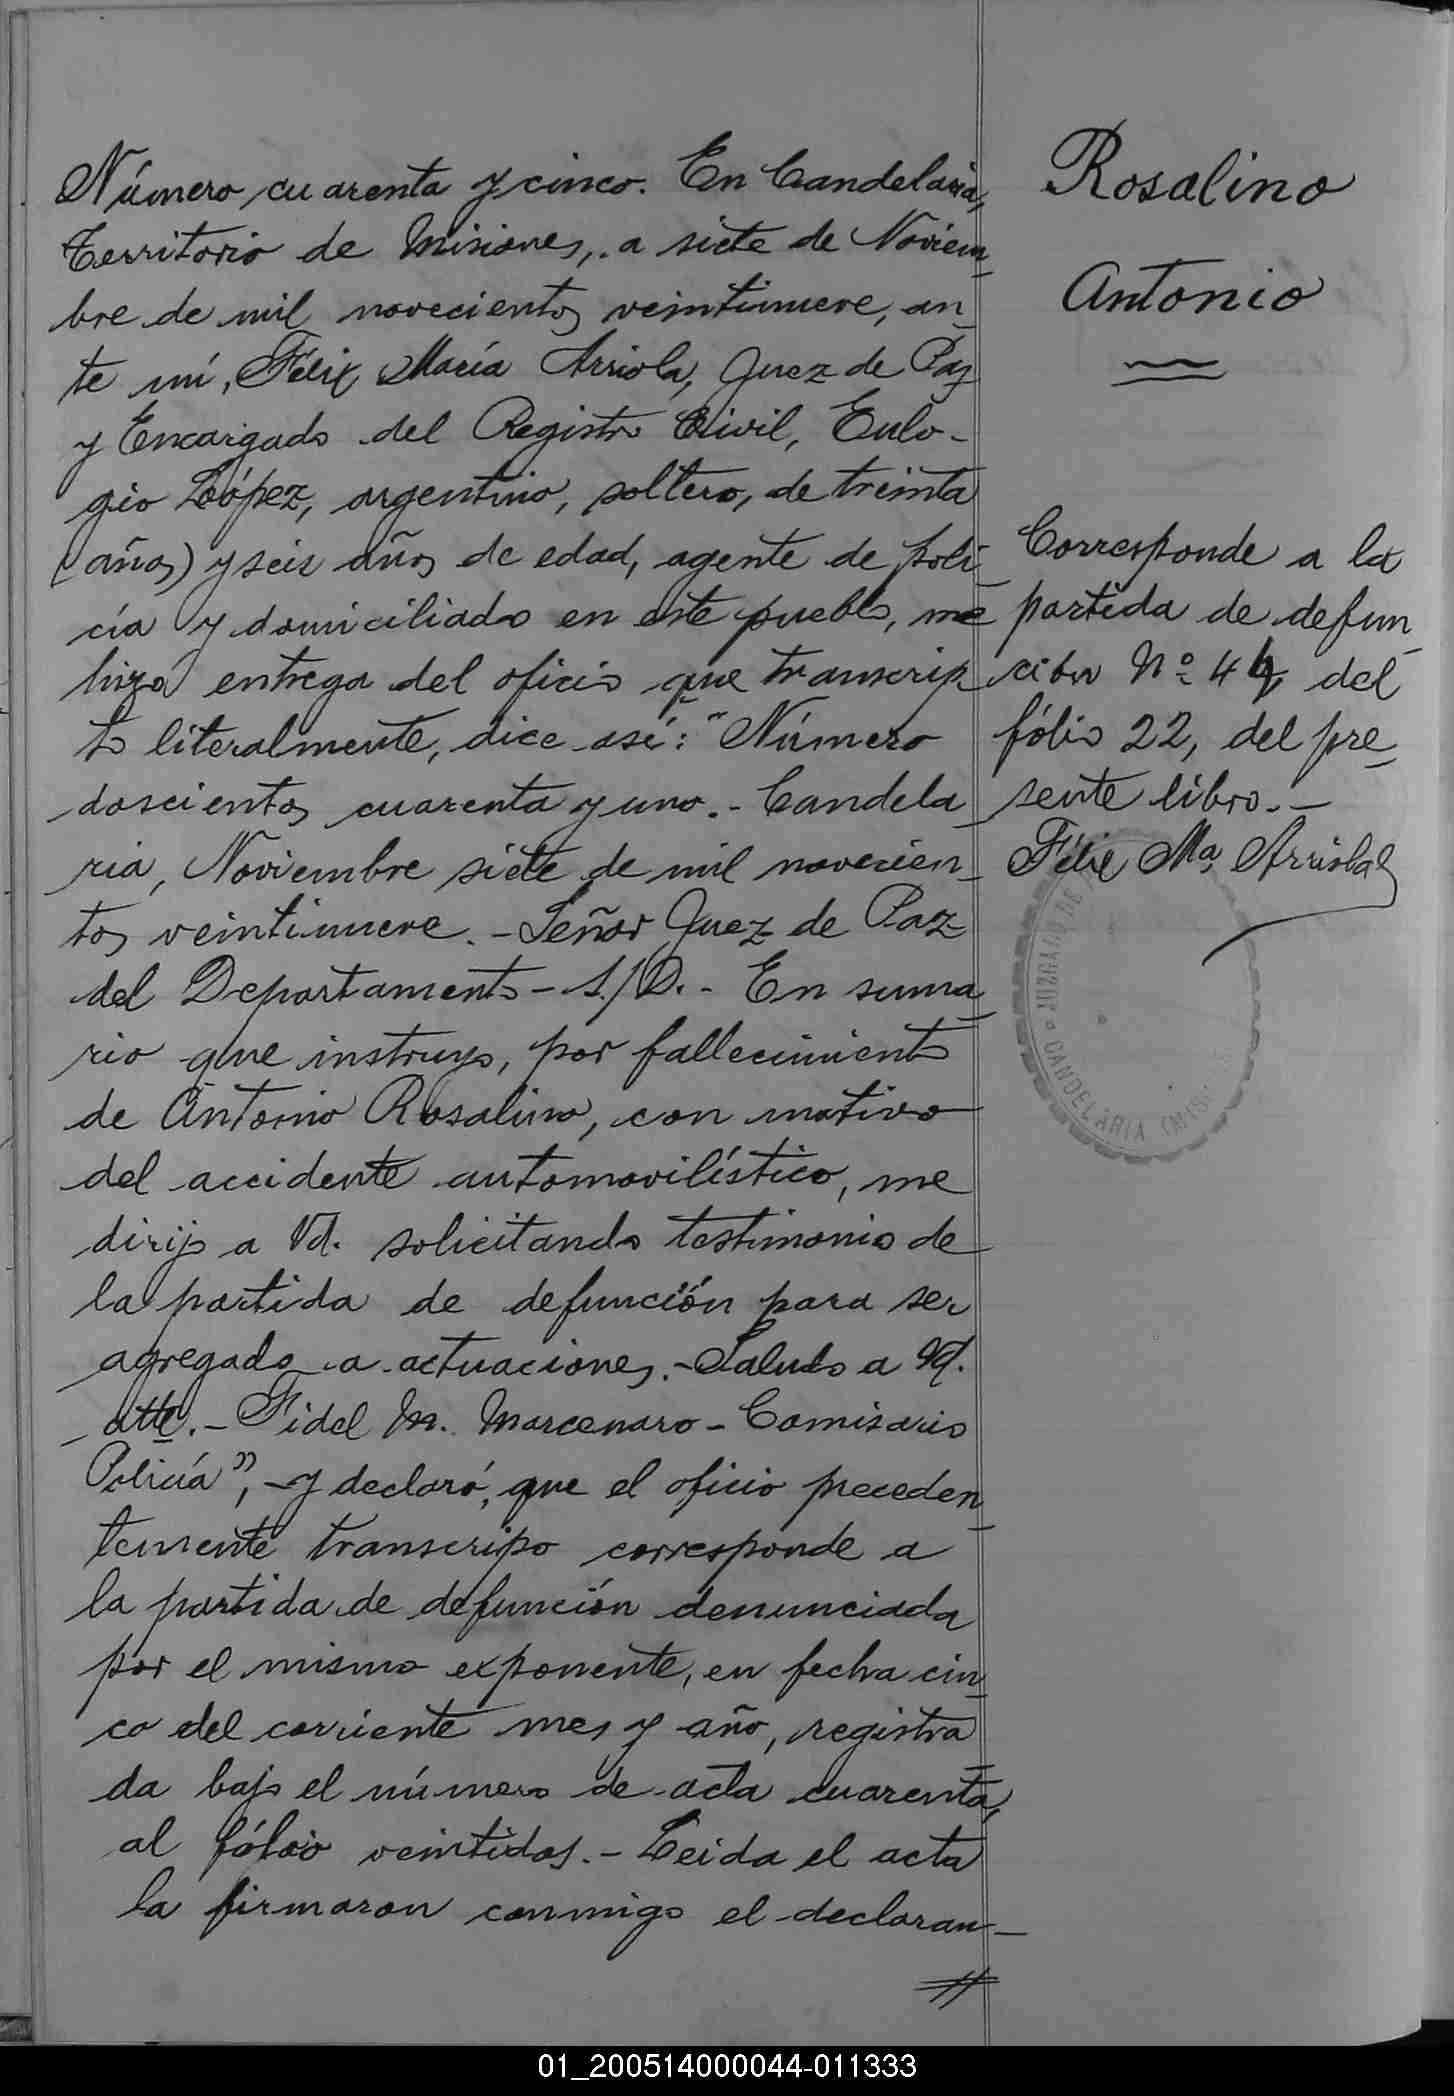 Número cuarenta y cinco. En Candelaria,
Territorio de Misiones, a siete de Noviem_
bre de mil novecientos veintinueve, an_
te mí, Félix María Arriola, Juez de Paz
y Encargado del Registro Civil, Eulo-
gio López, argentino, soltero, de treinta
(años) y seis años de edad, agente de poli_
cía y domiciliado en este pueblo, me
hizo entrega del oficio que transcrip_
to literalmente, dice así: "Número
doscientos cuarenta y uno.- Candela_
ria, Noviembre siete de mil novecien_
tos veintinueve.- Señor Juez de Paz
del Departamento - S./D.- En suma_
rio que instruyo, por fallecimiento
de Antonio Rosalino, con motivo
del accidente automovilístico, me
dirijo a Vd. solicitando testimonio de
la partida de defunción para ser
agregado a actuaciones.- Saludo a Vd.
atte.- Fidel M. Marcenaro - Comisario
Policía", - y declaró, que el oficio preceden_
temente transcripo corresponde a
la partida de defunción denunciada
por el mismo exponente, en fecha cin_
co del corriente mes y año, registra_
da bajo el número de acta cuarenta,
al fólio veintidos.- Leida el acta
la firmaron conmigo el declaran_
//
Rosalino
Antonio
Corresponde a la
partida de defun_
ción Nº 4 del
fólio 22, del pre_
sente libro.-
Félix Mª Arriola
JUZGADO DE
CANDELARIA (MIS
01_200514000044-011333